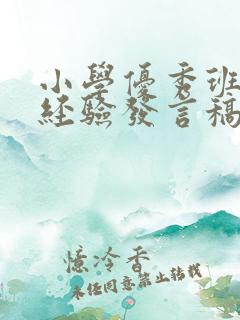 小學優秀班
經驗發言稿
憶冷香
未經同意禁止轉載